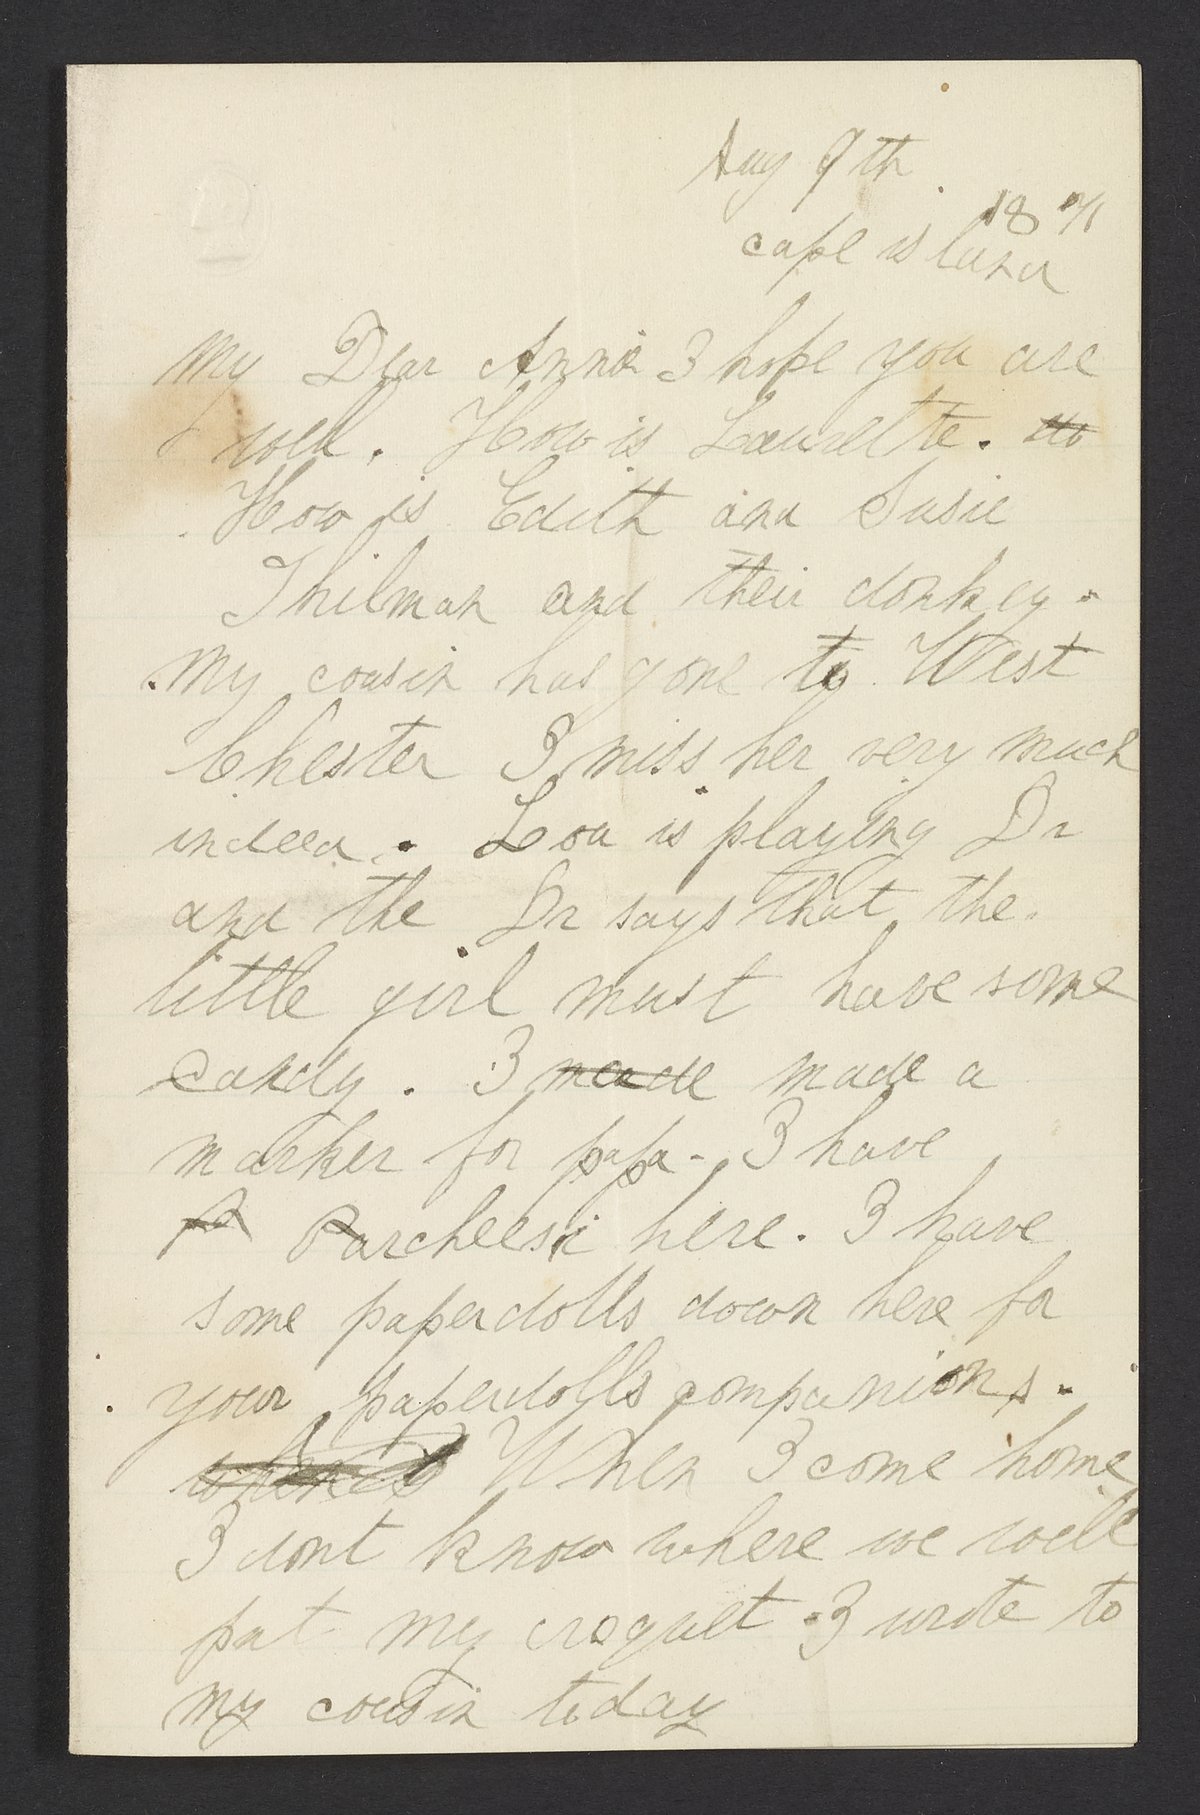 Aug 9th
1871
cape island
My Dear Annie I hope you are
well. How is Laurette. Ho
How is Edith and Susie
Thilman and their donkey.
My cousin has gone to West
Chester I miss her very much
indeed. Lou is playing Dr
and the Dr says that the
little girl must have some
candy. I meade made a
marker for papa. I have
P Parcheesi here. I have
some paperdolls down here for
your paperdolls companions.
When I come home
I dont know where we will
put my croquet. I wrote to
my cousin today